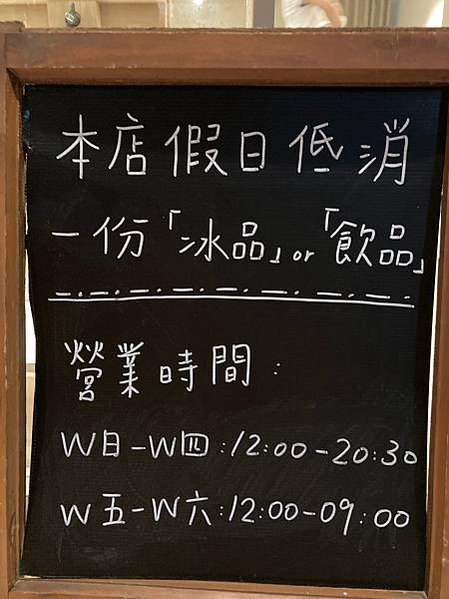 本店假日低消
一份「冰品」or「飲品」
營業時間:
W日-W四:12:00-20:30
W五-W六:12:00-09:00